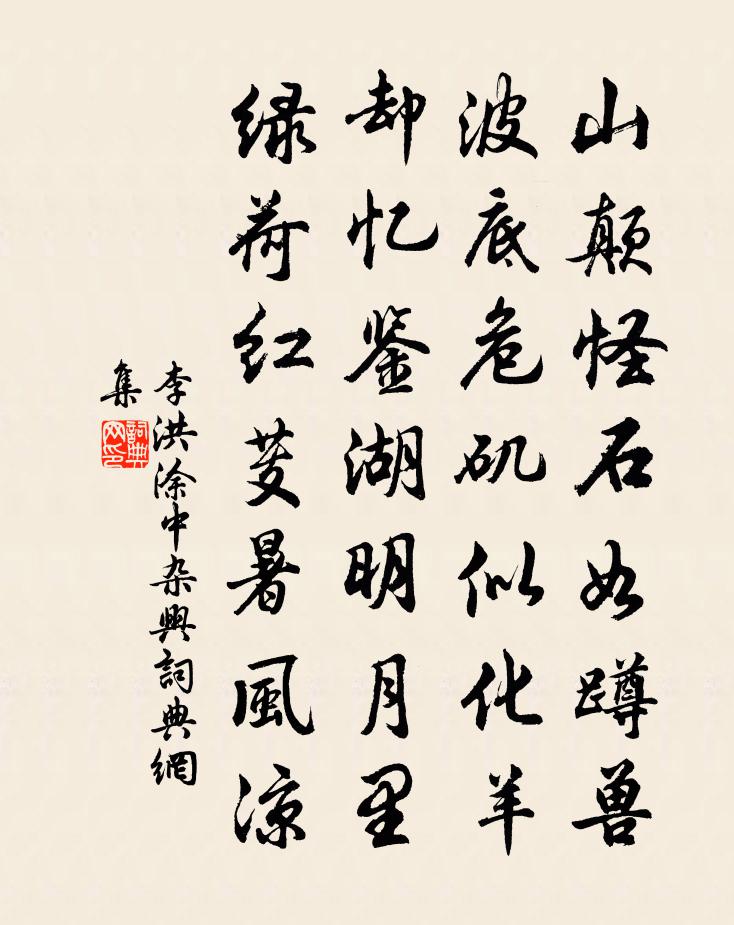 山颠怪石如蹲兽
波底危矶似化羊
却忆鉴湖明月里
绿荷红芰暑風凉
李洪涂中杂興詞典網
集
詞典网印